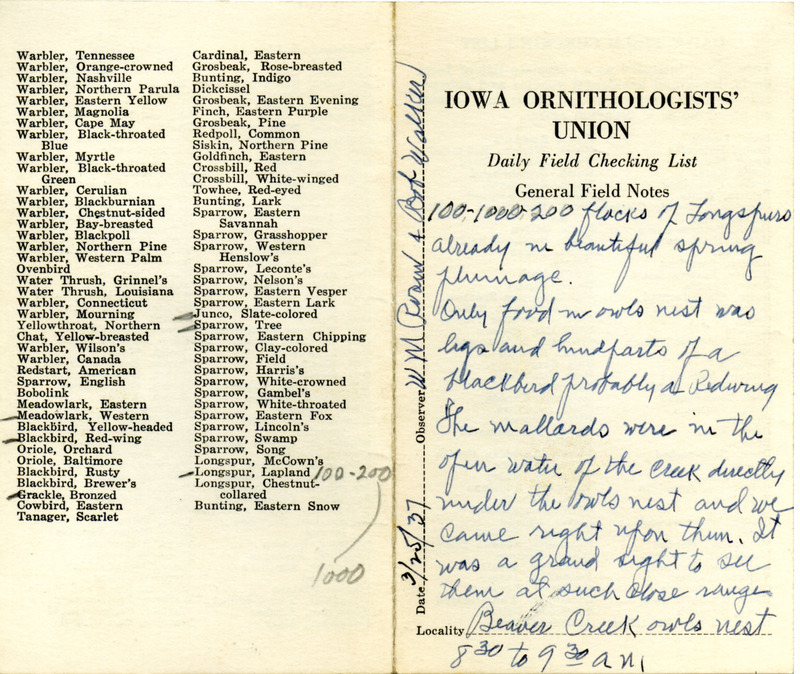 Warbler, Tennessee
Warbler, Orange-crowned
Warbler, Nashville
Warbler, Northern Parula
Warbler, Eastern Yellow
Warbler, Magnolia
Warbler, Cape May
Warbler, Black-throated
Blue
Warbler, Myrtle
Warbler, Black-throated
Green
Warbler, Cerulian
Warbler, Blackburnian
Warbler, Chestnut-sided
Warbler, Bay-breasted
Warbler, Blackpoll
Warbler, Northern Pine
Warbler, Western Palm
Ovenbird
Water Thrush, Grinnel's
Water Thrush, Louisiana
Warbler, Connecticut
Warbler, Mourning
Yellowthroat, Northern
Chat, Yellow-breasted
Warbler, Wilson's
Warbler, Canada
Redstart, American
Sparrow, English
Bobolink
Meadowlark, Eastern
Meadowlark, Western
Blackbird, Yellow-headed
Blackbird, Red-wing
Oriole, Orchard
Oriole, Baltimore
Blackbird, Rusty
Blackbird, Brewer's
Grackle, Bronzed
Cowbird, Eastern
Tanager, Scarlet
Cardinal, Eastern
Grosbeak, Rose-breasted
Bunting, Indigo
Dickcissel
Grosbeak, Eastern Evening
Finch, Eastern Purple
Grosbeak, Pine
Redpoll, Common
Siskin, Northern Pine
Goldfinch, Eastern
Crossbill, Red
Crossbill, White-winged
Towhee, Red-eyed
Bunting, Lark
Sparrow, Eastern
Savannah
Sparrow, Grasshopper
Sparrow, Western
Henslow's
Sparrow, Leconte's
Sparrow, Nelson's
Sparrow, Eastern Vesper
Sparrow, Eastern Lark
Junco, Slate-colored
Sparrow, Tree
Sparrow, Eastern Chipping
Sparrow, Clay-colored
Sparrow, Field
Sparrow, Harris's
Sparrow, White-crowned
Sparrow, Gambel's
Sparrow, White-throated
Sparrow, Eastern Fox
Sparrow, Lincoln's
Sparrow, Swamp
Sparrow, Song
Longspur, McCown's
Longspur, Lapland 100-200
Longspur, Chestnut-
collared
Bunting, Eastern Snow
1000
Date 3/25/37 Observer W M Rosen & Bob Walker
IOWA ORNITHOLOGISTS'
UNION
Daily Field Checking List
General Field Notes
100-1000-200 flocks of Longspurs
already in beautiful spring
plumage.
Only food in owls nest was
legs and hindparts of a
blackbird probably a Redwing
The mallards were in the
open water of the creek directly
under the owls nest and we
came right upon them. It
was a grand sight to see
them at such close range
Locality Beaver Creek owls nest
8 30 to 9 30 a m